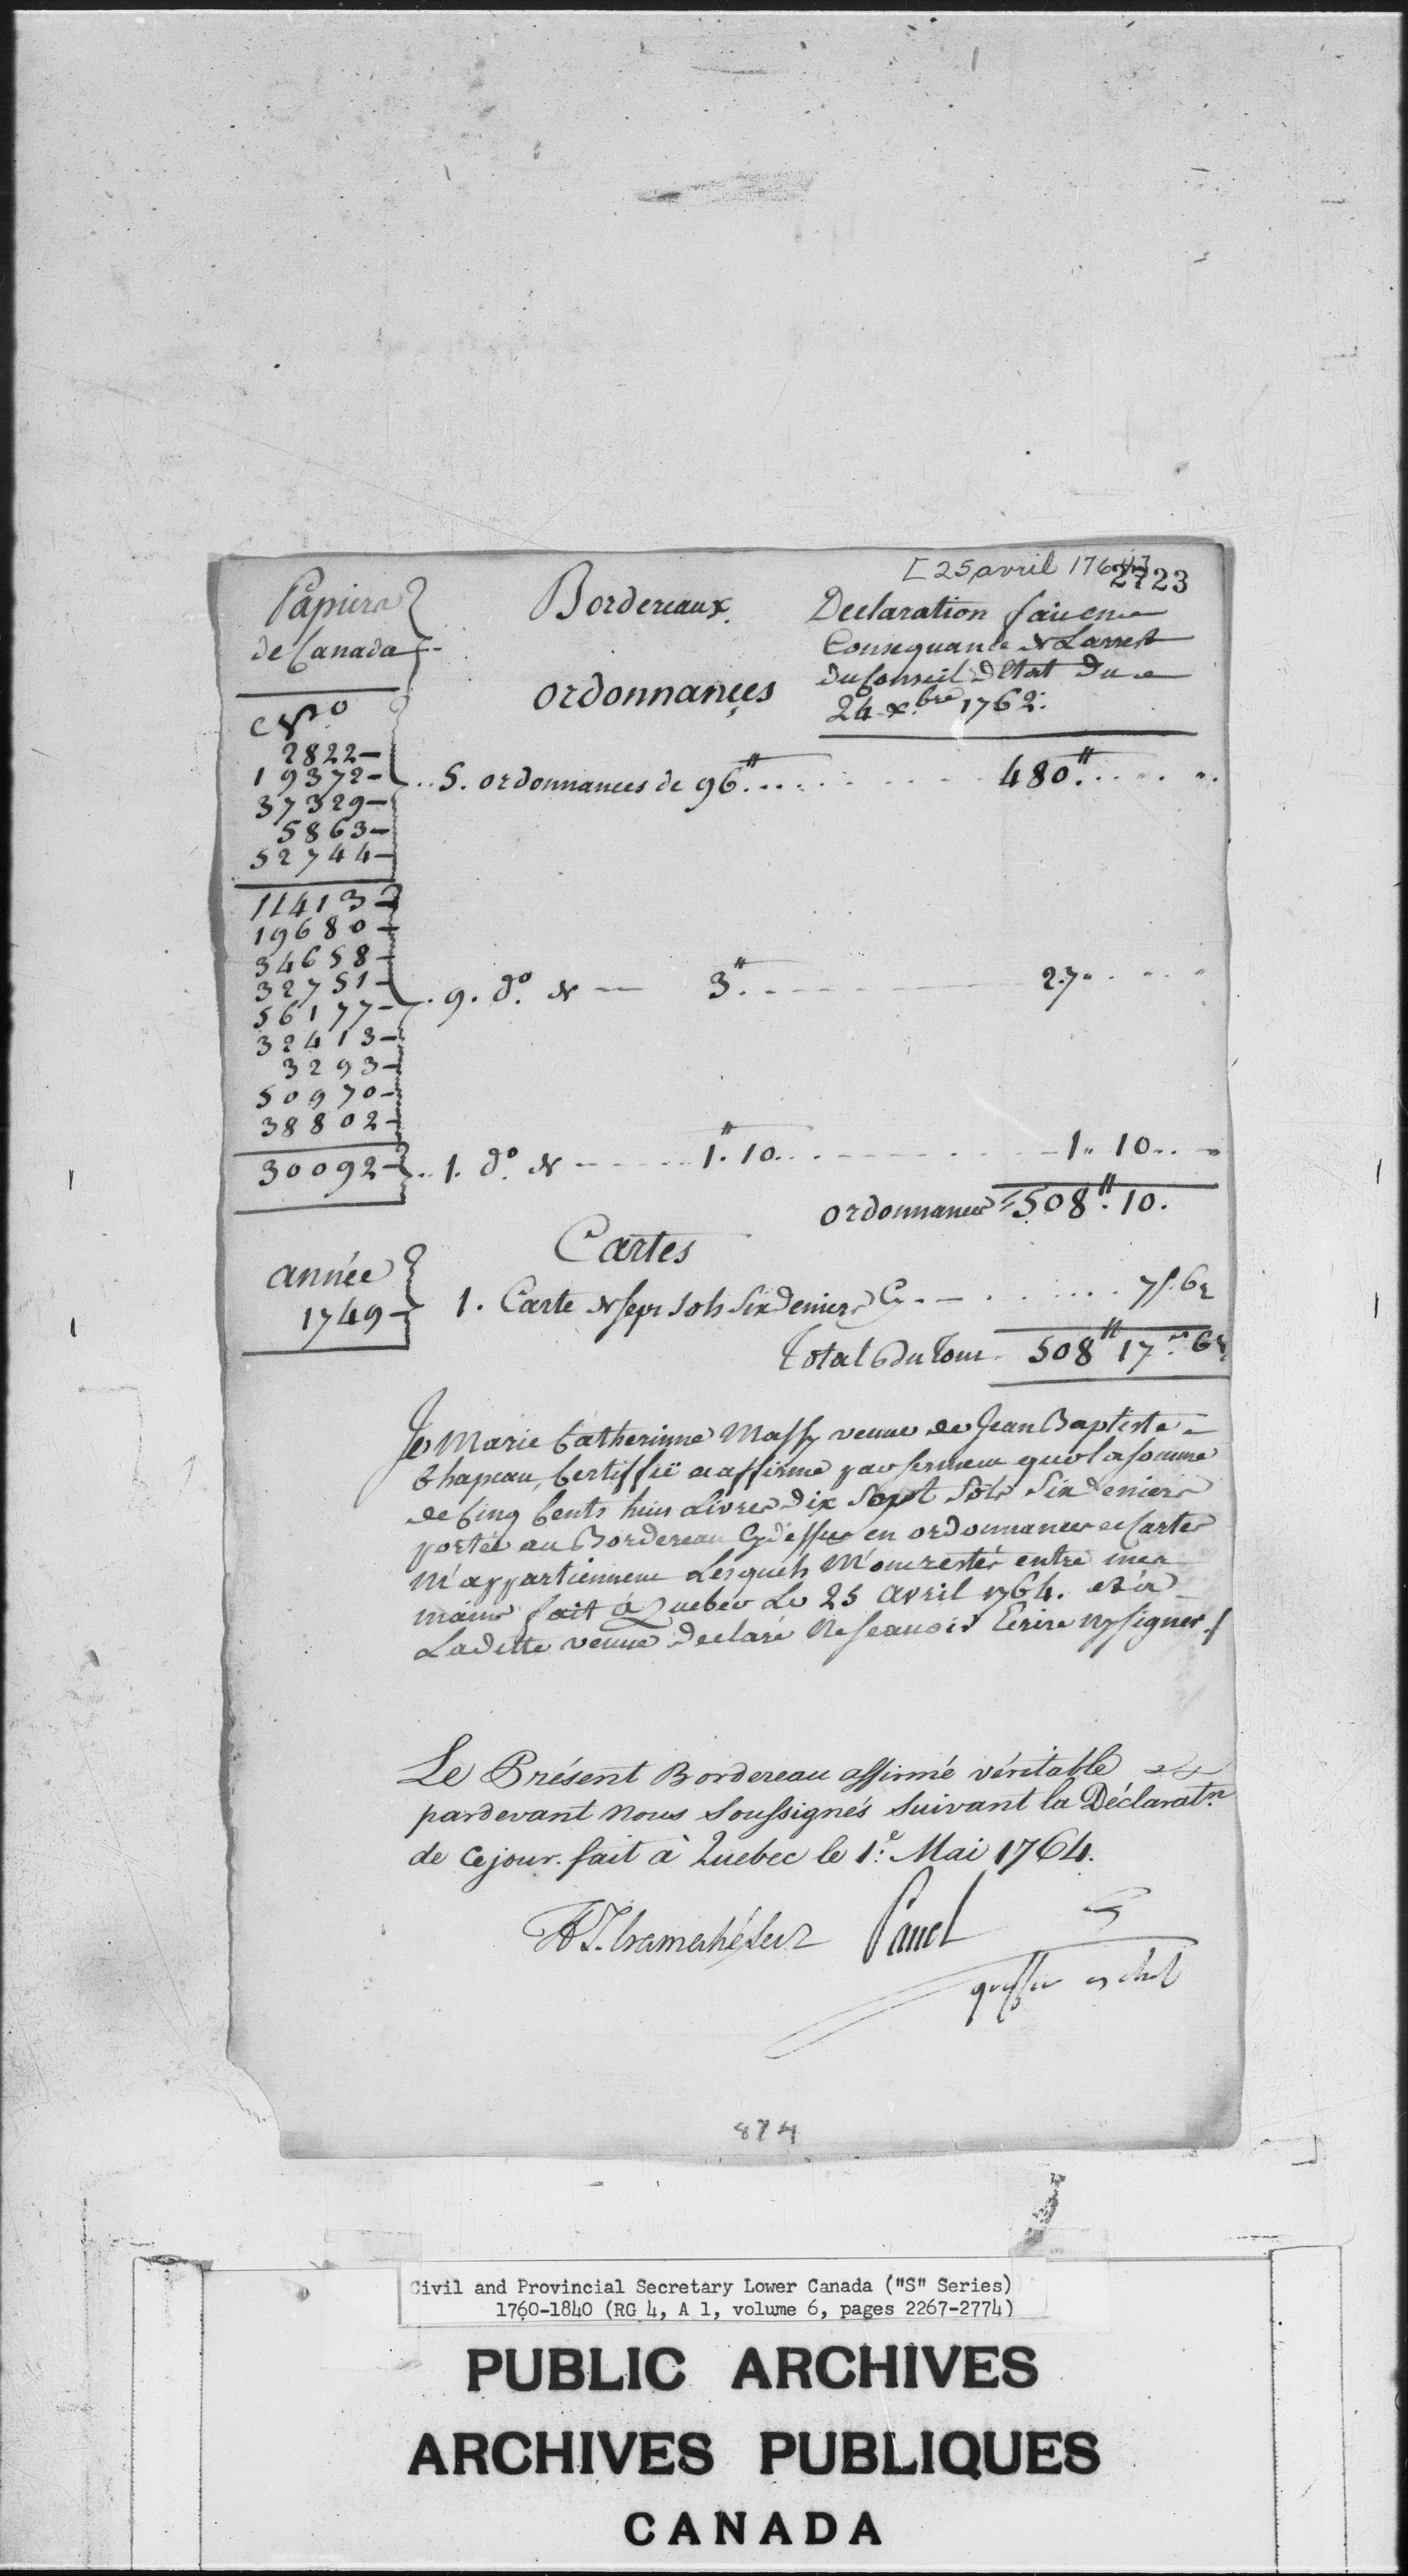 [25 avril 1764]
2723
Papiers
de Canada
Bordereaux
Declaration faite en
Consequance de Larrest
du Conseil D'Etat Du
24 xbre 1762.
ordonnances
No
2822
19372
37329
5863
52744
5. ordonnances de 96ᵗᵗ 480ᵗᵗ
11413
19680
34658
32751
56177
32413
3293
50970
38802
9. do de 3ᵗᵗ 27
30092
1. do de 1ᵗᵗ 10 1 10
ordonnances 508ᵗᵗ 10.
Cartes
année
1749
1. Carte de sept sols Six deniers Cy 7s. 6d
Total Du Tout 508ᵗᵗ 17s 6d
Je Marie Catherinne Massy veuve de Jean Baptiste
Chapeau, Certiffie et affirme par serment que la somme
de Cinq Cents huit Livres Dix Sept Sols Six deniers
portée au Bordereau Cy dessus en ordonnances et Cartes
M'appartiennent Lesquels M'ont restés entre mes
mains fait à Quebec Le 25 Avril 1764. et à
Ladite veuve declaré Ne scavoir Ecrire ny signer
Le Présent Bordereau affirmé véritable
pardevant Nous Soussignés Suivant la Déclaratn
de Ce jour. fait à Quebec le 1e Mai 1764.
HT. Cramahé Panet
greffier
874
Civil and Provincial Secretary Lower Canada ("S" Series)
1760-1840 (RG 4, A 1, volume 6, pages 2267-2774)
PUBLIC ARCHIVES
ARCHIVES PUBLIQUES
CANADA